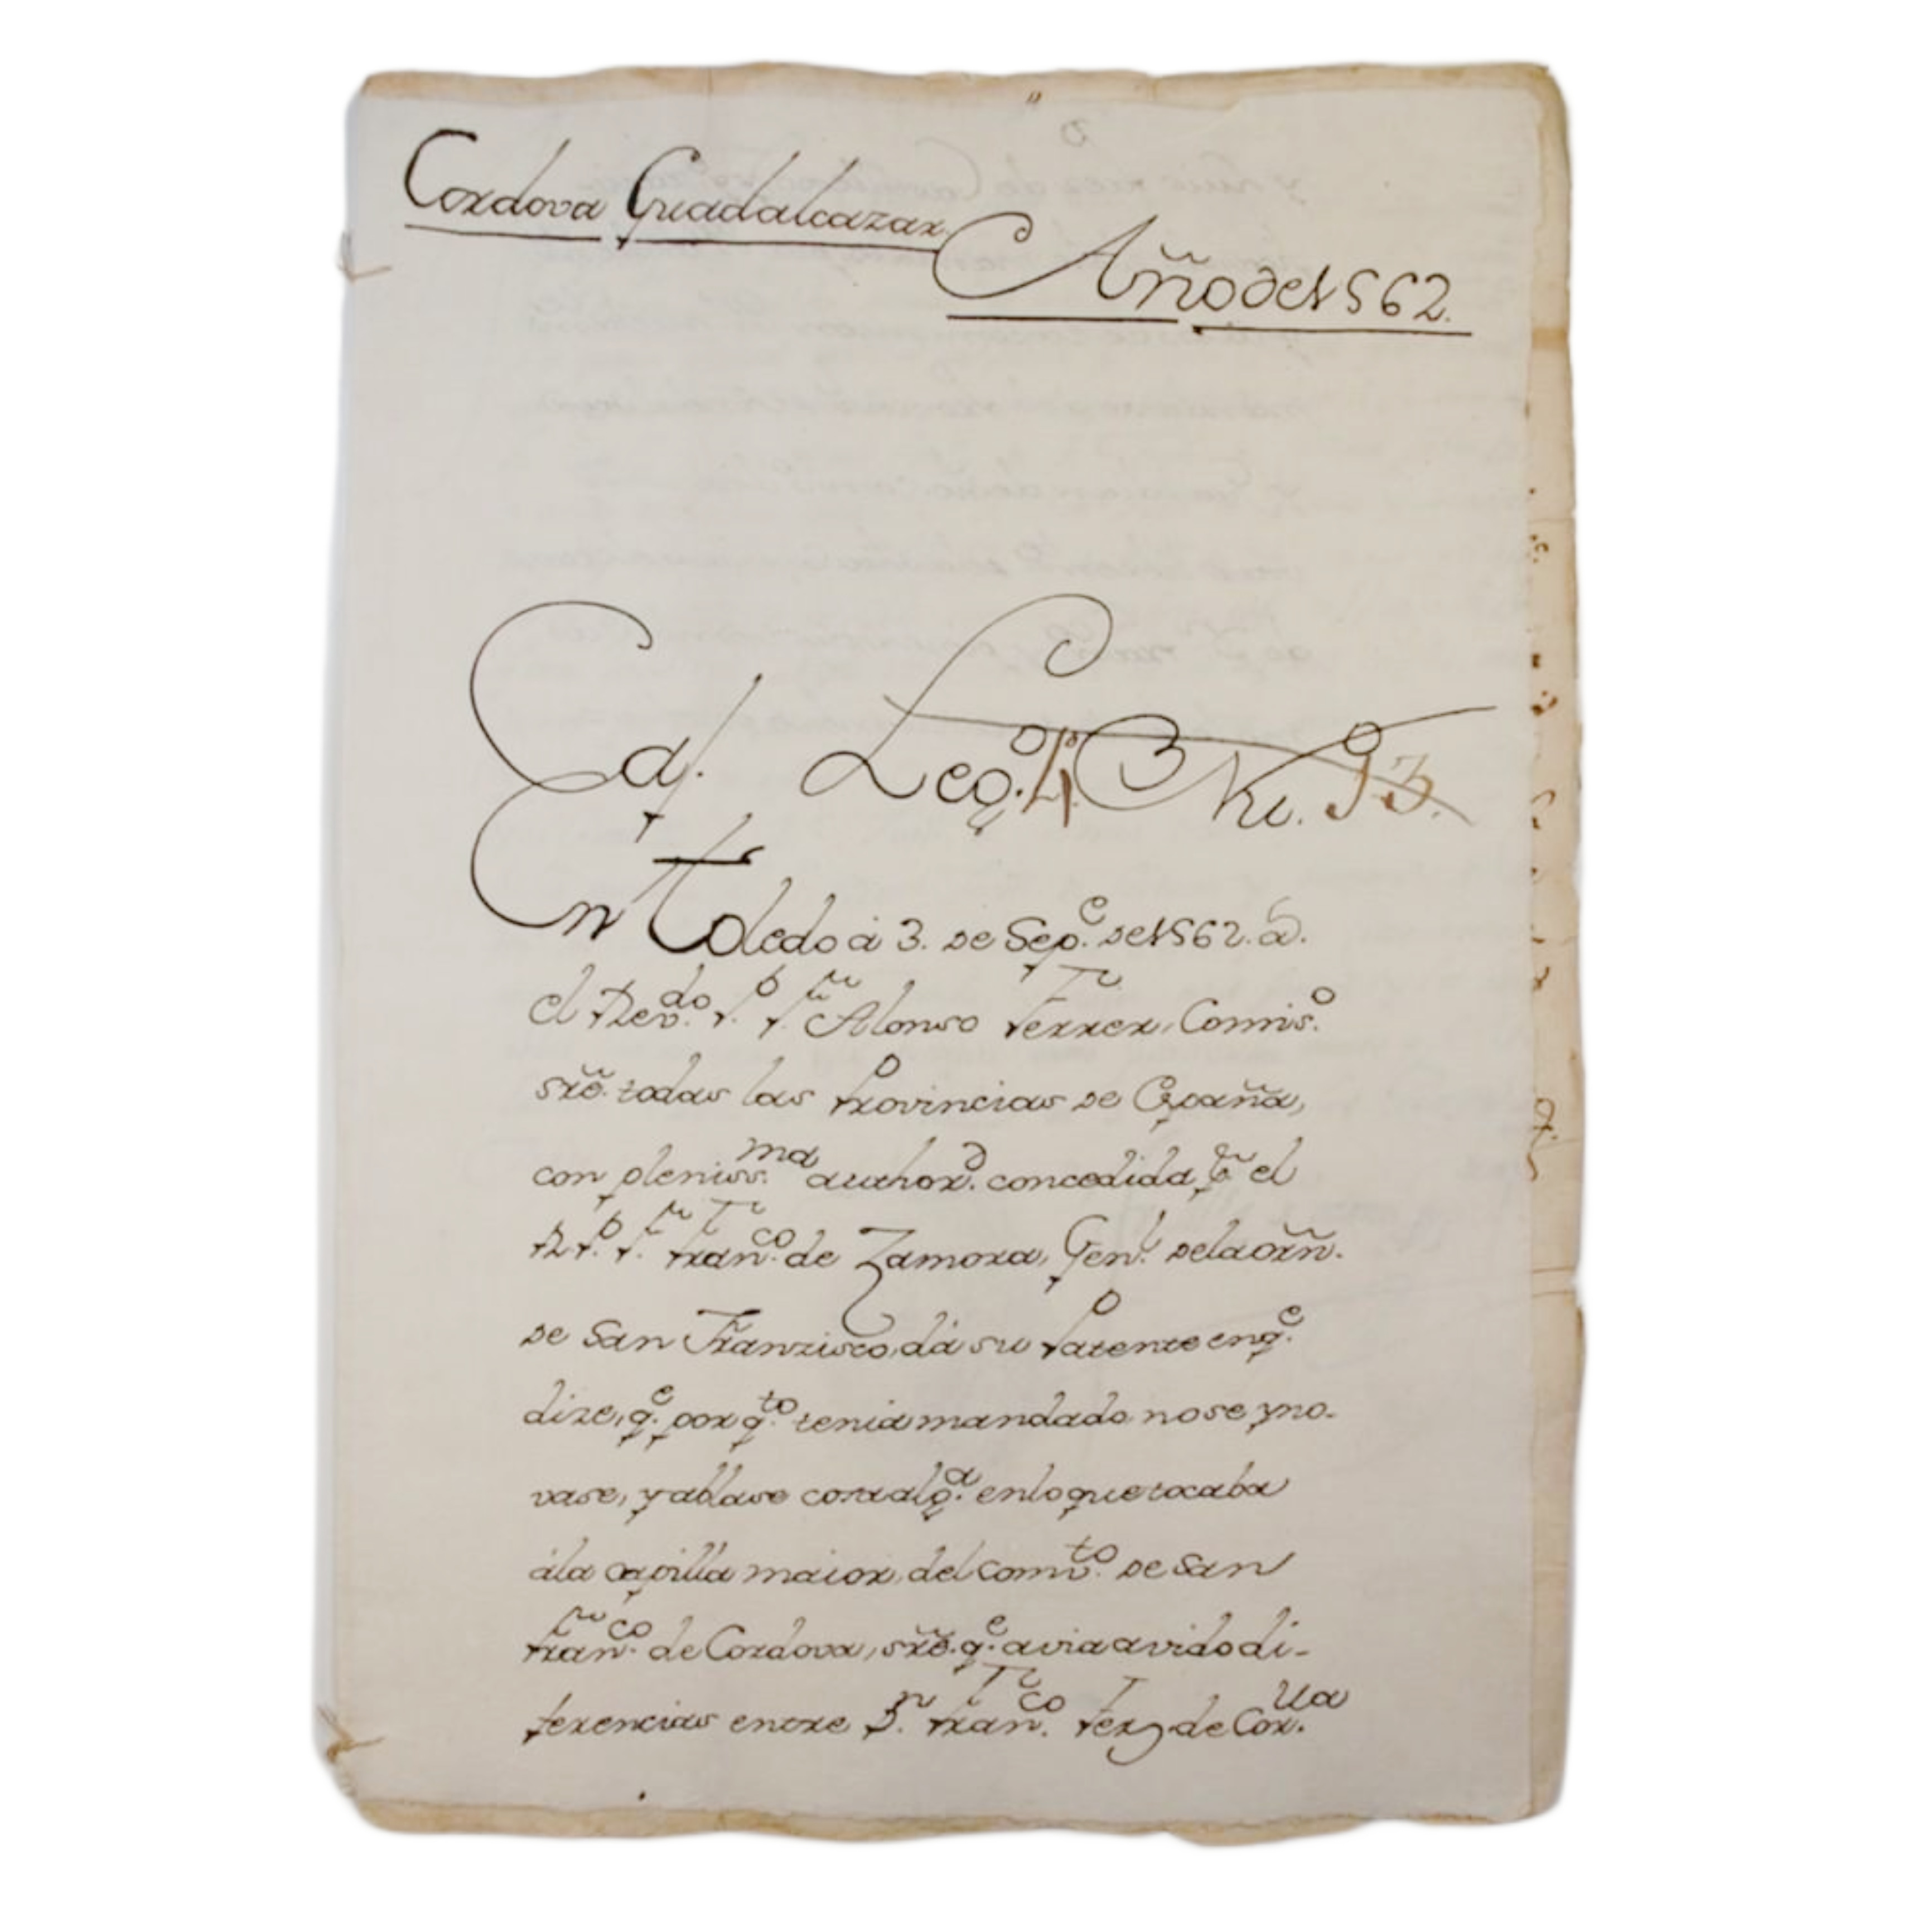 Cordova Guadalcazar.
Año de 1562.
Caj. Leg.º 4 3 Nu. 93.
En Toledo á 3. de Sep.e de 1562. a.
el Rev.do P. F. Alonso Ferrer, Comis.o
sre. todas las Provincias de España,
con pleniss.ma author.d concedida pr. el
R. P. F. Fran.co de Zamora, Gen.l de la orñ.
de San Franzisco, dá su Patente en q.e
dize, q.e por q.to tenia mandado no se yno-
vase, y ablase cosa alg.a en lo que tocaba
á la capilla maior, del comv.to de San
Fran.co de Cordova, sre. q.e avia avido di-
ferencias entre D.n Fran.co Fez de Cor.va